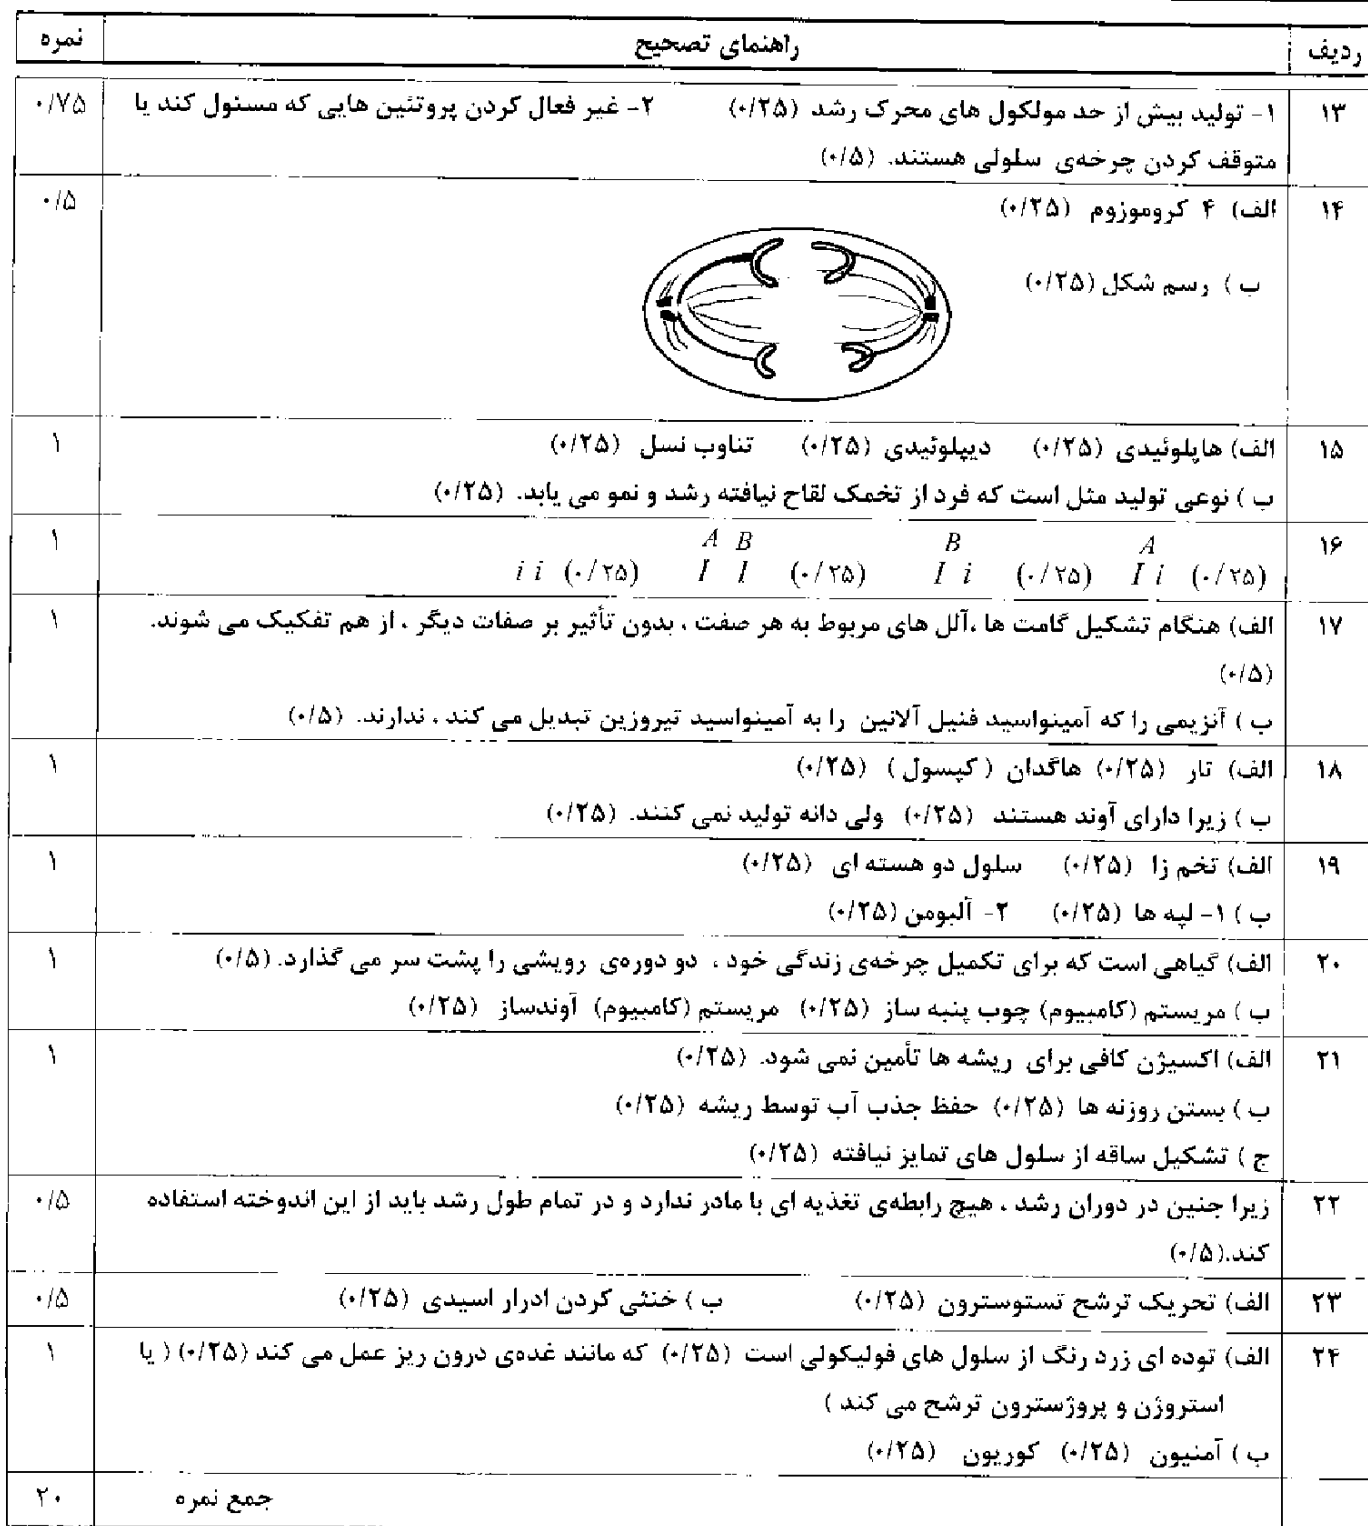 ردیف راهنمای تصحیح نمره
۱۳ ۱- تولید بیش از حد مولکول های محرک رشد (۰/۲۵) ۲- غیر فعال کردن پروتئین هایی که مسئول کند یا ۰/۷۵
متوقف کردن چرخه‌ی سلولی هستند. (۰/۵)
۱۴ الف) ۴ کروموزوم (۰/۲۵) ۰/۵
ب ) رسم شکل (۰/۲۵)
۱۵ الف) هاپلوئیدی (۰/۲۵) دیپلوئیدی (۰/۲۵) تناوب نسل (۰/۲۵) ۱
ب ) نوعی تولید مثل است که فرد از تخمک لقاح نیافته رشد و نمو می یابد. (۰/۲۵)
۱۶ I^A i (۰/۲۵) I^B i (۰/۲۵) I^A I^B (۰/۲۵) i i (۰/۲۵) ۱
۱۷ الف) هنگام تشکیل گامت ها ،آلل های مربوط به هر صفت ، بدون تأثیر بر صفات دیگر ، از هم تفکیک می شوند. ۱
(۰/۵)
ب ) آنزیمی را که آمینواسید فنیل آلانین را به آمینواسید تیروزین تبدیل می کند ، ندارند. (۰/۵)
۱۸ الف) تار (۰/۲۵) هاگدان ( کپسول ) (۰/۲۵) ۱
ب ) زیرا دارای آوند هستند (۰/۲۵) ولی دانه تولید نمی کنند. (۰/۲۵)
۱۹ الف) تخم زا (۰/۲۵) سلول دو هسته ای (۰/۲۵) ۱
ب ) ۱- لپه ها (۰/۲۵) ۲- آلبومن (۰/۲۵)
۲۰ الف) گیاهی است که برای تکمیل چرخه‌ی زندگی خود ، دو دوره‌ی رویشی را پشت سر می گذارد. (۰/۵) ۱
ب ) مریستم (کامبیوم) چوب پنبه ساز (۰/۲۵) مریستم (کامبیوم) آوندساز (۰/۲۵)
۲۱ الف) اکسیژن کافی برای ریشه ها تأمین نمی شود. (۰/۲۵) ۱
ب ) بستن روزنه ها (۰/۲۵) حفظ جذب آب توسط ریشه (۰/۲۵)
ج ) تشکیل ساقه از سلول های تمایز نیافته (۰/۲۵)
۲۲ زیرا جنین در دوران رشد ، هیچ رابطه‌ی تغذیه ای با مادر ندارد و در تمام طول رشد باید از این اندوخته استفاده ۰/۵
کند.(۰/۵)
۲۳ الف) تحریک ترشح تستوسترون (۰/۲۵) ب ) خنثی کردن ادرار اسیدی (۰/۲۵) ۰/۵
۲۴ الف) توده ای زرد رنگ از سلول های فولیکولی است (۰/۲۵) که مانند غده‌ی درون ریز عمل می کند (۰/۲۵) ( یا ۱
استروژن و پروژسترون ترشح می کند )
ب ) آمنیون (۰/۲۵) کوریون (۰/۲۵)
جمع نمره ۲۰